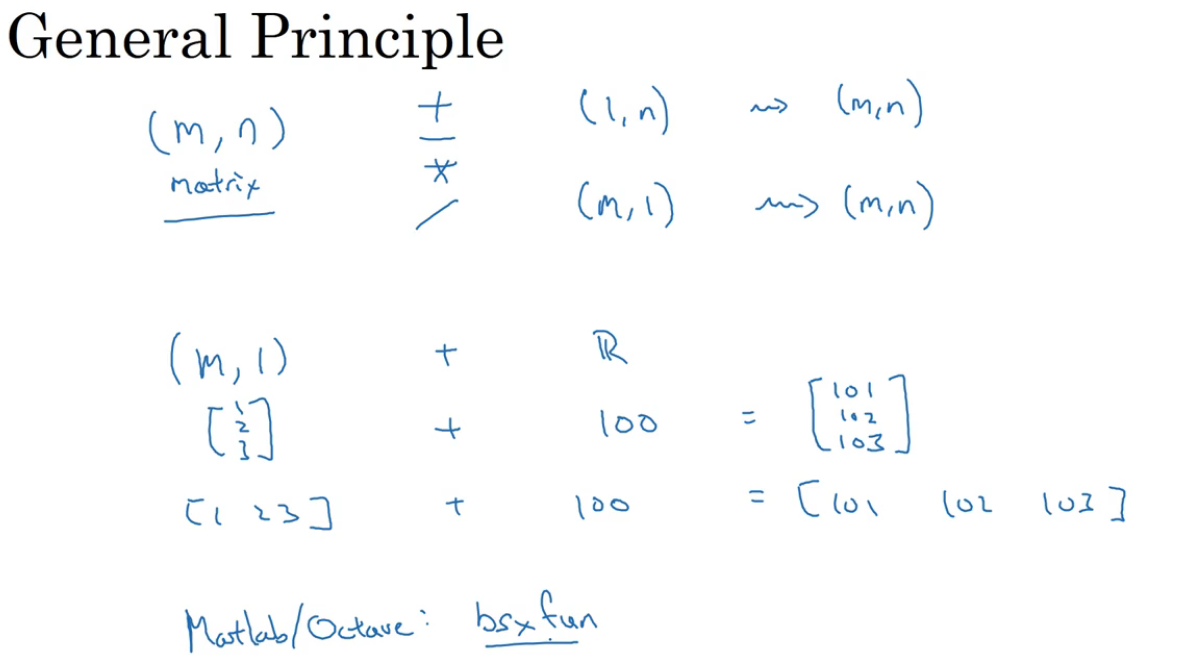 General Principle
(m, n) + (1, n) ⇝ (m, n)
matrix - *
/ (m, 1) ⇝ (m, n)
(m, 1) + ℝ
[1 2 3] + 100 = [101 102 103]
[1 2 3] + 100 = [101 102 103]
Matlab/Octave: bsxfun